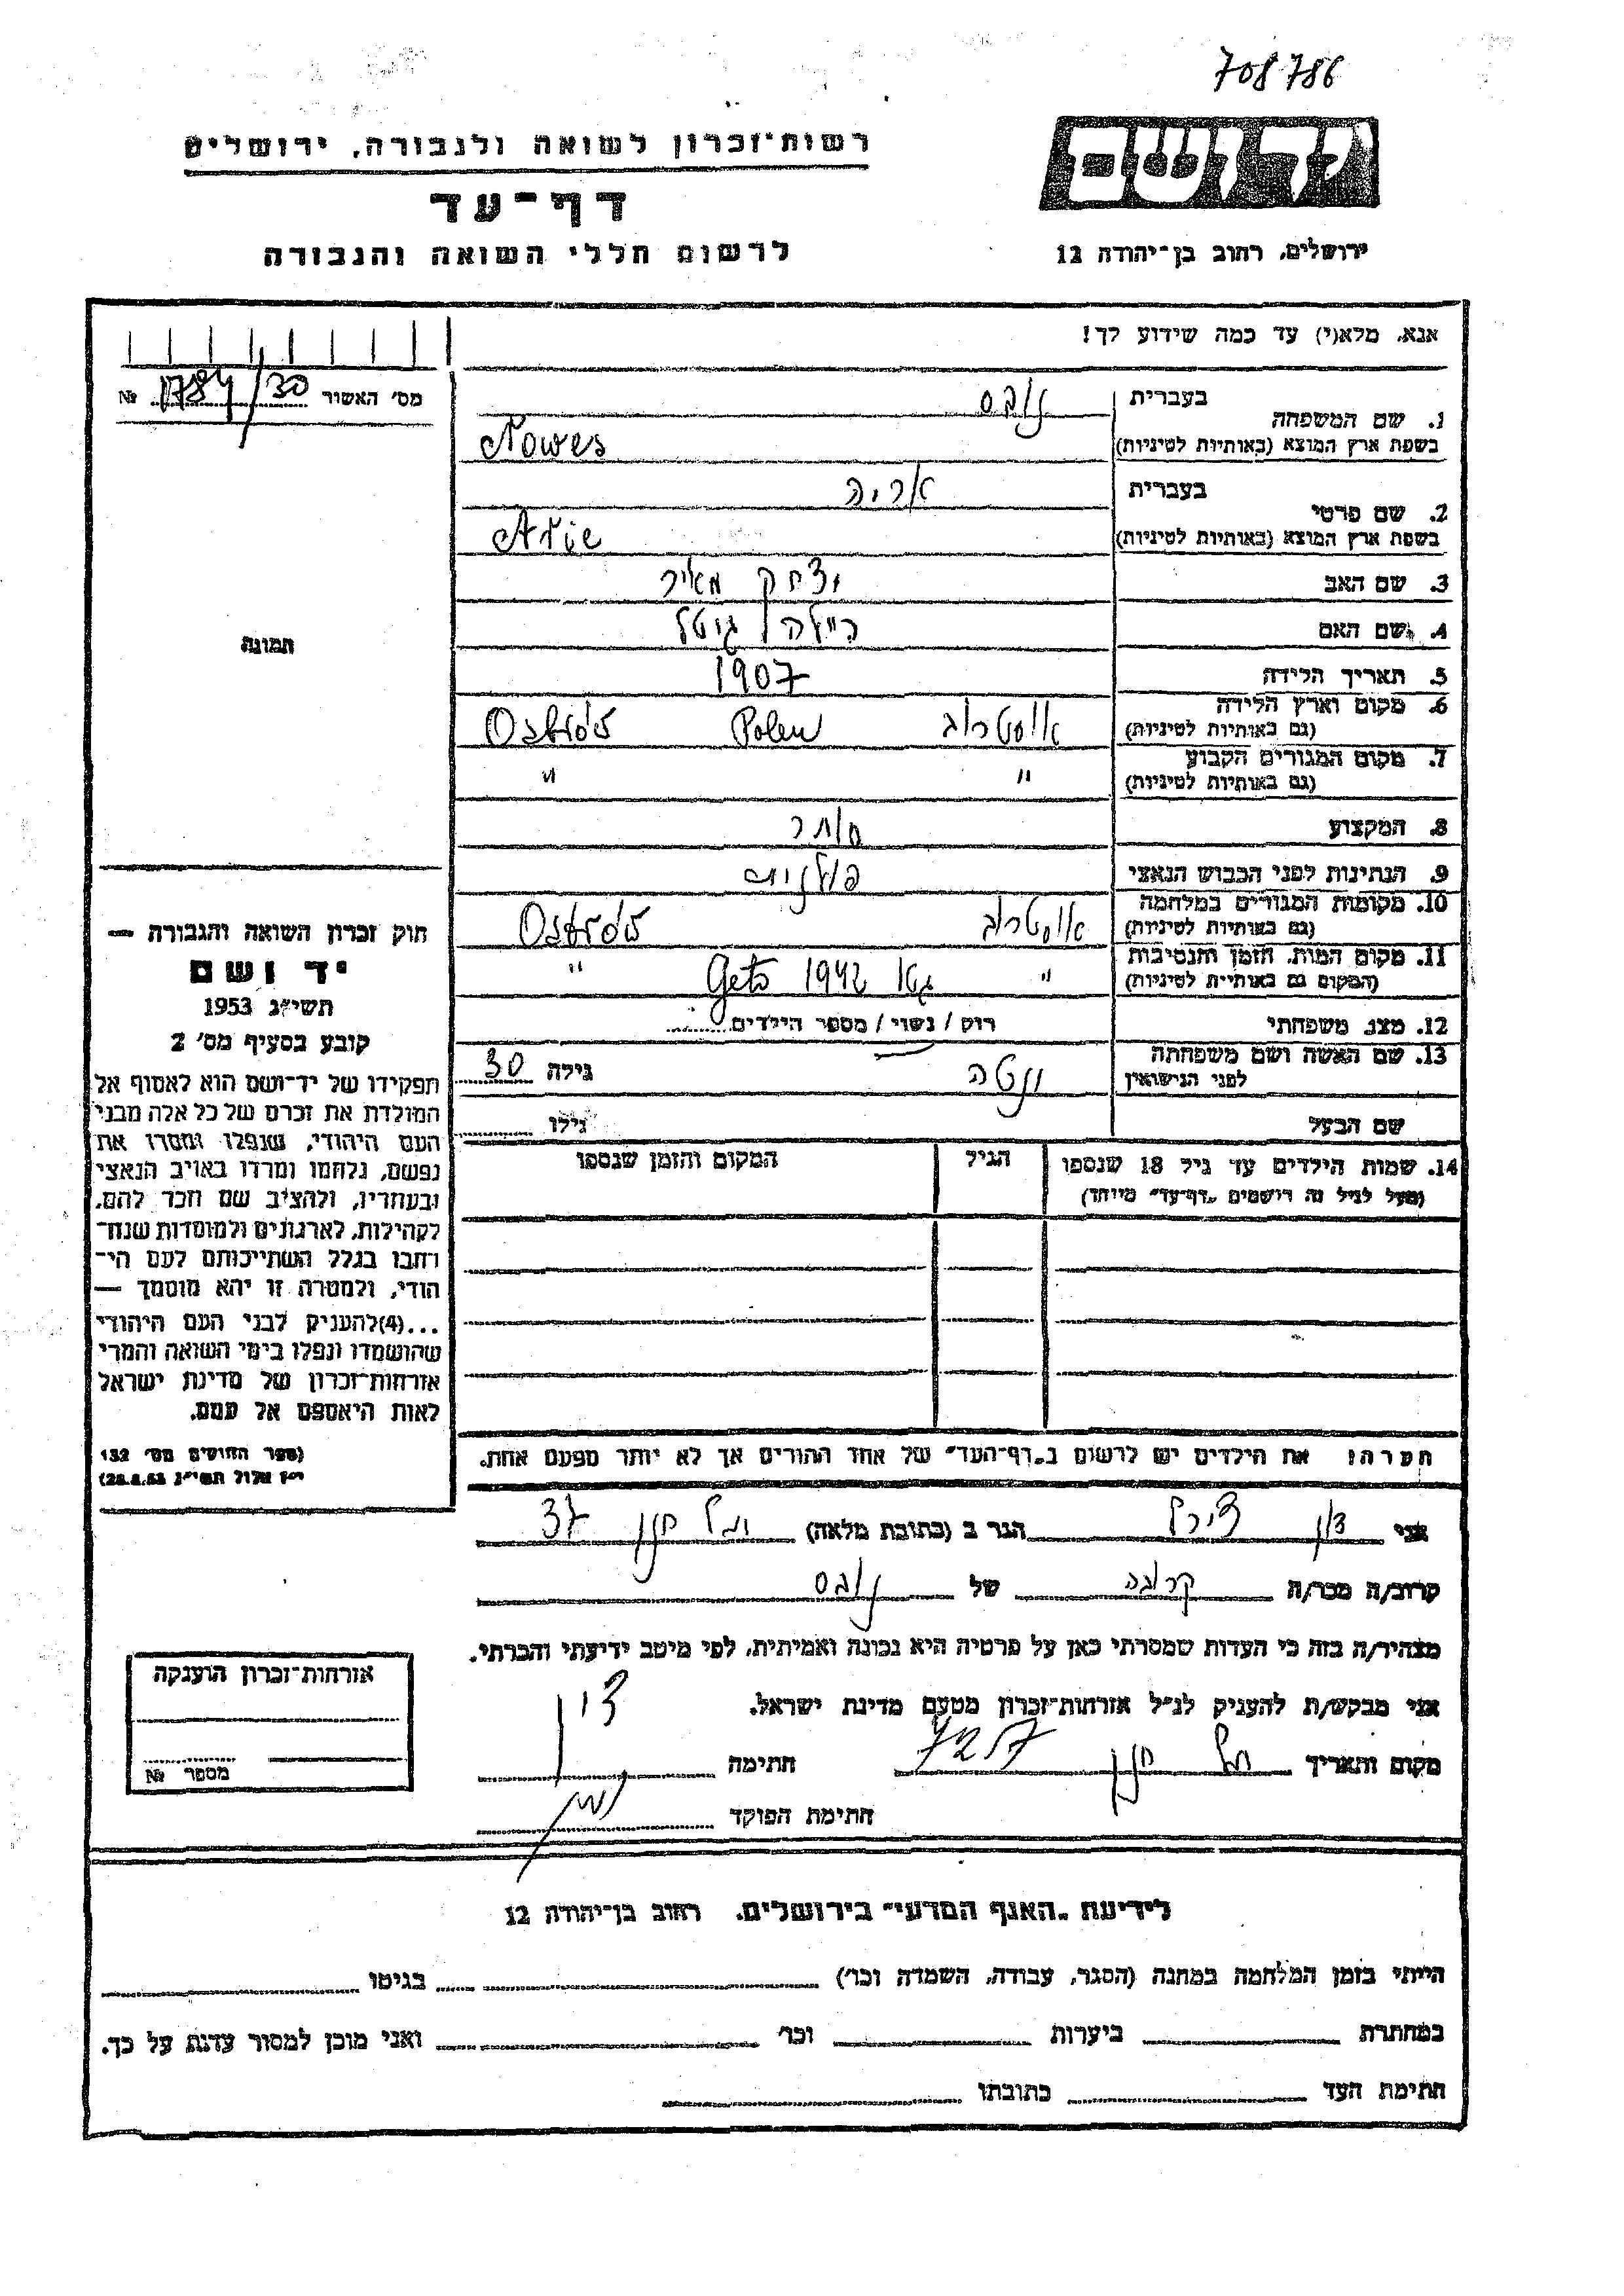 708786
רשות־זכרון לשואה ולגבורה, ירושלים
יד ושם
דף־עד
לרשום חללי השואה והגבורה
ירושלים, רחוב בן־יהודה 12
אנא, מלא(י) עד כמה שידוע לך!
מס׳ האשור 1784/30 №
1. שם המשפחה
בעברית נובס
בשפת ארץ המוצא (באותיות לטיניות) Nowes
2. שם פרטי
בעברית אריה
בשפת ארץ המוצא (באותיות לטיניות) Arie
3. שם האב יצחק מאיר
4. שם האם ביילה גיטל
5. תאריך הלידה 1907
6. מקום וארץ הלידה אוסטרוב Polen Ostrów
(גם באותיות לטיניות)
7. מקום המגורים הקבוע " "
(גם באותיות לטיניות)
8. המקצוע סוחר
9. הנתינות לפני הכבוש הנאצי פולנית
10. מקומות המגורים במלחמה אוסטרוב Ostrów
(גם באותיות לטיניות)
11. מקום המות, הזמן והנסיבות " גטו 1942 Geto "
(המקום גם באותיות לטיניות)
12. מצב משפחתי רוק / נשוי / מספר הילדים
13. שם האשה ושם משפחתה יוטה גילה 30
לפני הנישואין
שם הבעל גילו
14. שמות הילדים עד גיל 18 שנספו הגיל המקום והזמן שנספו
(מעל לגיל זה רושמים „דף־עד" מיוחד)
תמונה
חוק זכרון השואה והגבורה —
יד ושם
תשי״ג 1953
קובע בסעיף מס׳ 2
תפקידו של יד־ושם הוא לאסוף אל
המולדת את זכרם של כל אלה מבני
העם היהודי, שנפלו ומסרו את
נפשם, נלחמו ומרדו באויב הנאצי
ובעוזריו, ולהציב שם וזכר להם,
לקהילות, לארגונים ולמוסדות שנח־
רבו בגלל השתייכותם לעם הי־
הודי, ולמטרה זו יהא מוסמך —
...(4)להעניק לבני העם היהודי
שהושמדו ונפלו בימי השואה והמרי
אזרחות־זכרון של מדינת ישראל
לאות היאספם אל עמם.
(ספר החוקים מס׳ 132
י״ז אלול תשי״ג 28.8.53)
הערה: את הילדים יש לרשום ב„דף־העד" של אחד ההורים אך לא יותר מפעם אחת.
אני צירל הגר ב (כתובת מלאה) 37
קרוב/ה מכר/ה קרובה של נובס
מצהיר/ה בזה כי העדות שמסרתי כאן על פרטיה היא נכונה ואמיתית, לפי מיטב ידיעתי והכרתי.
אני מבקש/ת להעניק לנ״ל אזרחות־זכרון מטעם מדינת ישראל.
מקום ותאריך חתימה
חתימת הפוקד
אזרחות־זכרון הוענקה
מספר №
לידיעת „האגף המדעי" בירושלים, רחוב בן־יהודה 12
הייתי בזמן המלחמה במחנה (הסגר, עבודה, השמדה וכו׳) בגיטו
במחתרת ביערות וכו׳ ואני מוכן למסור עדות על כך.
חתימת העד כתובתו